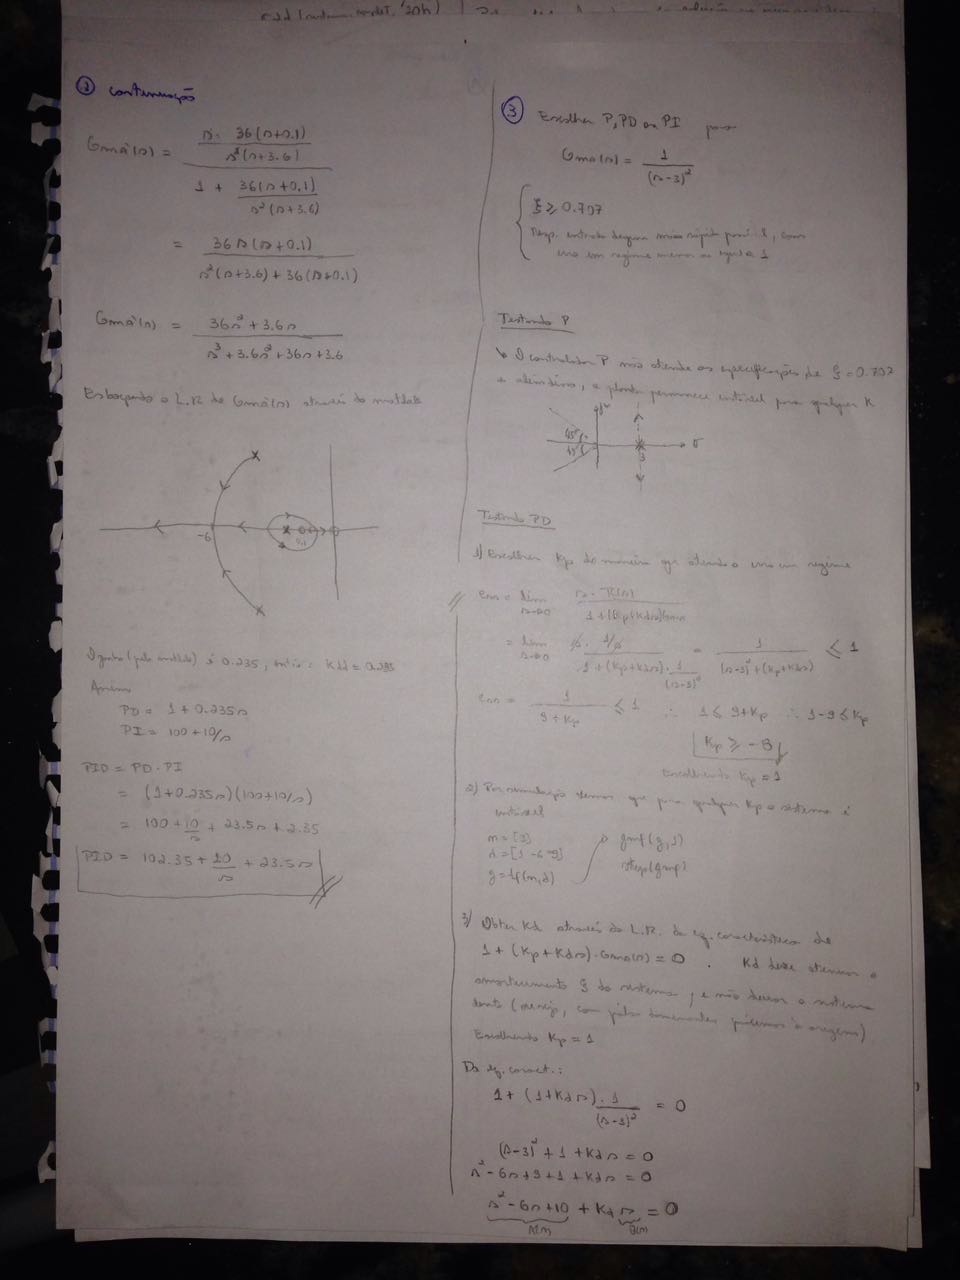 ② continuação
Gmá'(s) = s · 36(s+0.1) / s²(s+3.6)
1 + 36(s+0.1) / s²(s+3.6)
= 36s(s+0.1) / s²(s+3.6) + 36(s+0.1)
Gmá'(s) = 36s² + 3.6s / s³ + 3.6s² + 36s + 3.6
Esboçando o L.R. de Gmá'(s) através do matlab
-6
0,1
O ganho (pelo matlab) é 0.235, então: Kdd = 0.235
Assim
PD = 1 + 0.235s
PI = 100 + 10/s
PID = PD · PI
= (1+0.235s)(100+10/s)
= 100 + 10/s + 23.5s + 2.35
PID = 102.35 + 10/s + 23.5s
③ Escolher P, PD ou PI para
Gma(s) = 1 / (s-3)²
ξ ≥ 0.707
Resp. entrada degrau mais rápida possível, com
erro em regime menor ou igual a 1
Testando P
↳ O controlador P não atende as especificações de ξ = 0.707
e além disso, a planta permanece instável para qualquer K
jω
45°
45°
σ
3
Testando PD
1) Escolher Kp de maneira que atenda o erro em regime
Ess = lim s→0 s · R(s) / 1 + (Kp+Kds)Gma
= lim s→0 s · 1/s / 1 + (Kp+Kds) · 1/(s-3)² = 1 / (s-3)² + (Kp+Kds) ≤ 1
Ess = 1 / 9 + Kp ≤ 1 ∴ 1 ≤ 9+Kp ∴ 1-9 ≤ Kp
Kp ≥ -8
Escolhendo Kp = 1
2) Por simulação vemos que para qualquer Kp o sistema é
instável
n = [1] gmf(g,1)
d = [1 -6 9] step(gmf)
g = tf(n,d)
3) Obter Kd através do L.R. da eq. característica de
1 + (Kp+Kds) · Gma(s) = 0 . Kd deve atender o
amortecimento ξ do sistema, e não deixar o sistema
lento (ou seja, com pólos dominantes próximos à origem)
Escolhendo Kp = 1
Da eq. caract.:
1 + (1+Kds) · 1 / (s-3)² = 0
(s-3)² + 1 + Kds = 0
s² - 6s + 9 + 1 + Kds = 0
s² - 6s + 10 + Kd s = 0
A(s) B(s)